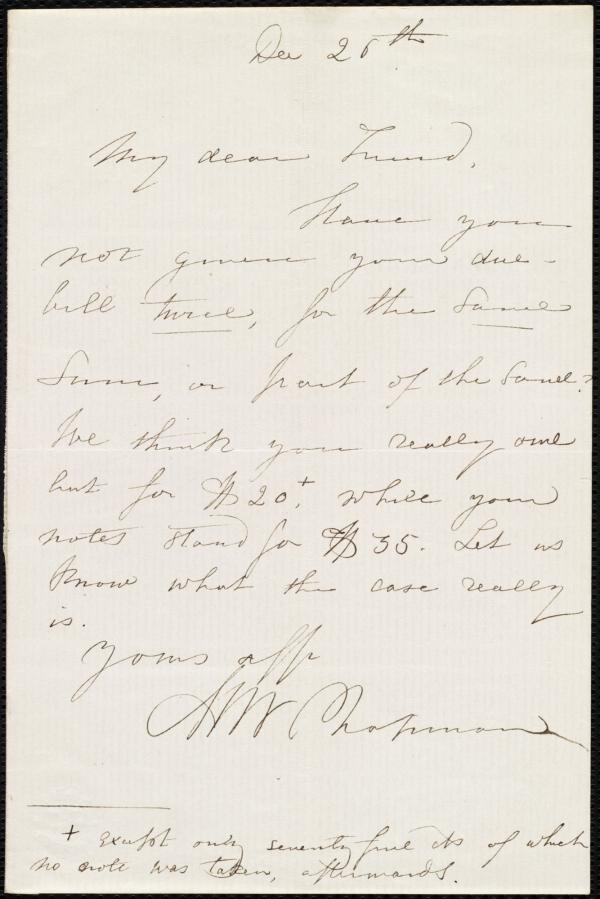 Dec 26th
My dear Friend,
Have you
not given your due-
bill twice, for the same
sum, or part of the same?
We think you really owe
but for $20+, while your
notes stand for $35. Let us
know what the case really
is.
Yours aff
MW Chapman
+ except only seventy five cts of which
no note was taken, afterwards.